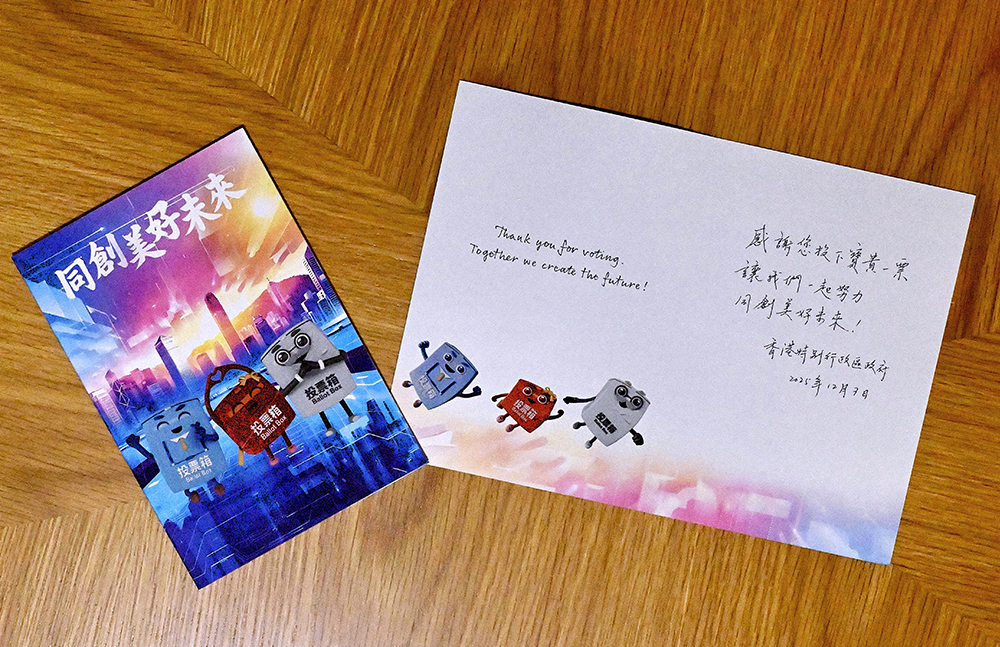 同創美好未來
投票箱
Ballot Box
投票箱
Ballot Box
投票箱
Ballot Box
Thank you for voting.
Together we create the future!
感謝您投下寶貴一票
讓我們一起努力
同創美好未來!
香港特別行政區政府
2025年12月7日
投票箱
投票箱
投票箱